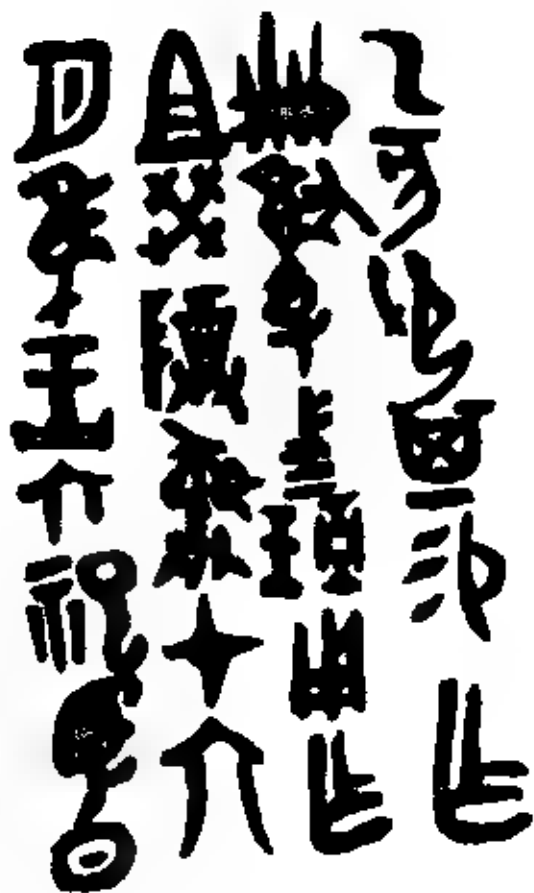 乙亥邲其易乍
册一用乍
且癸尊彝才六
月隹王六祀羽日